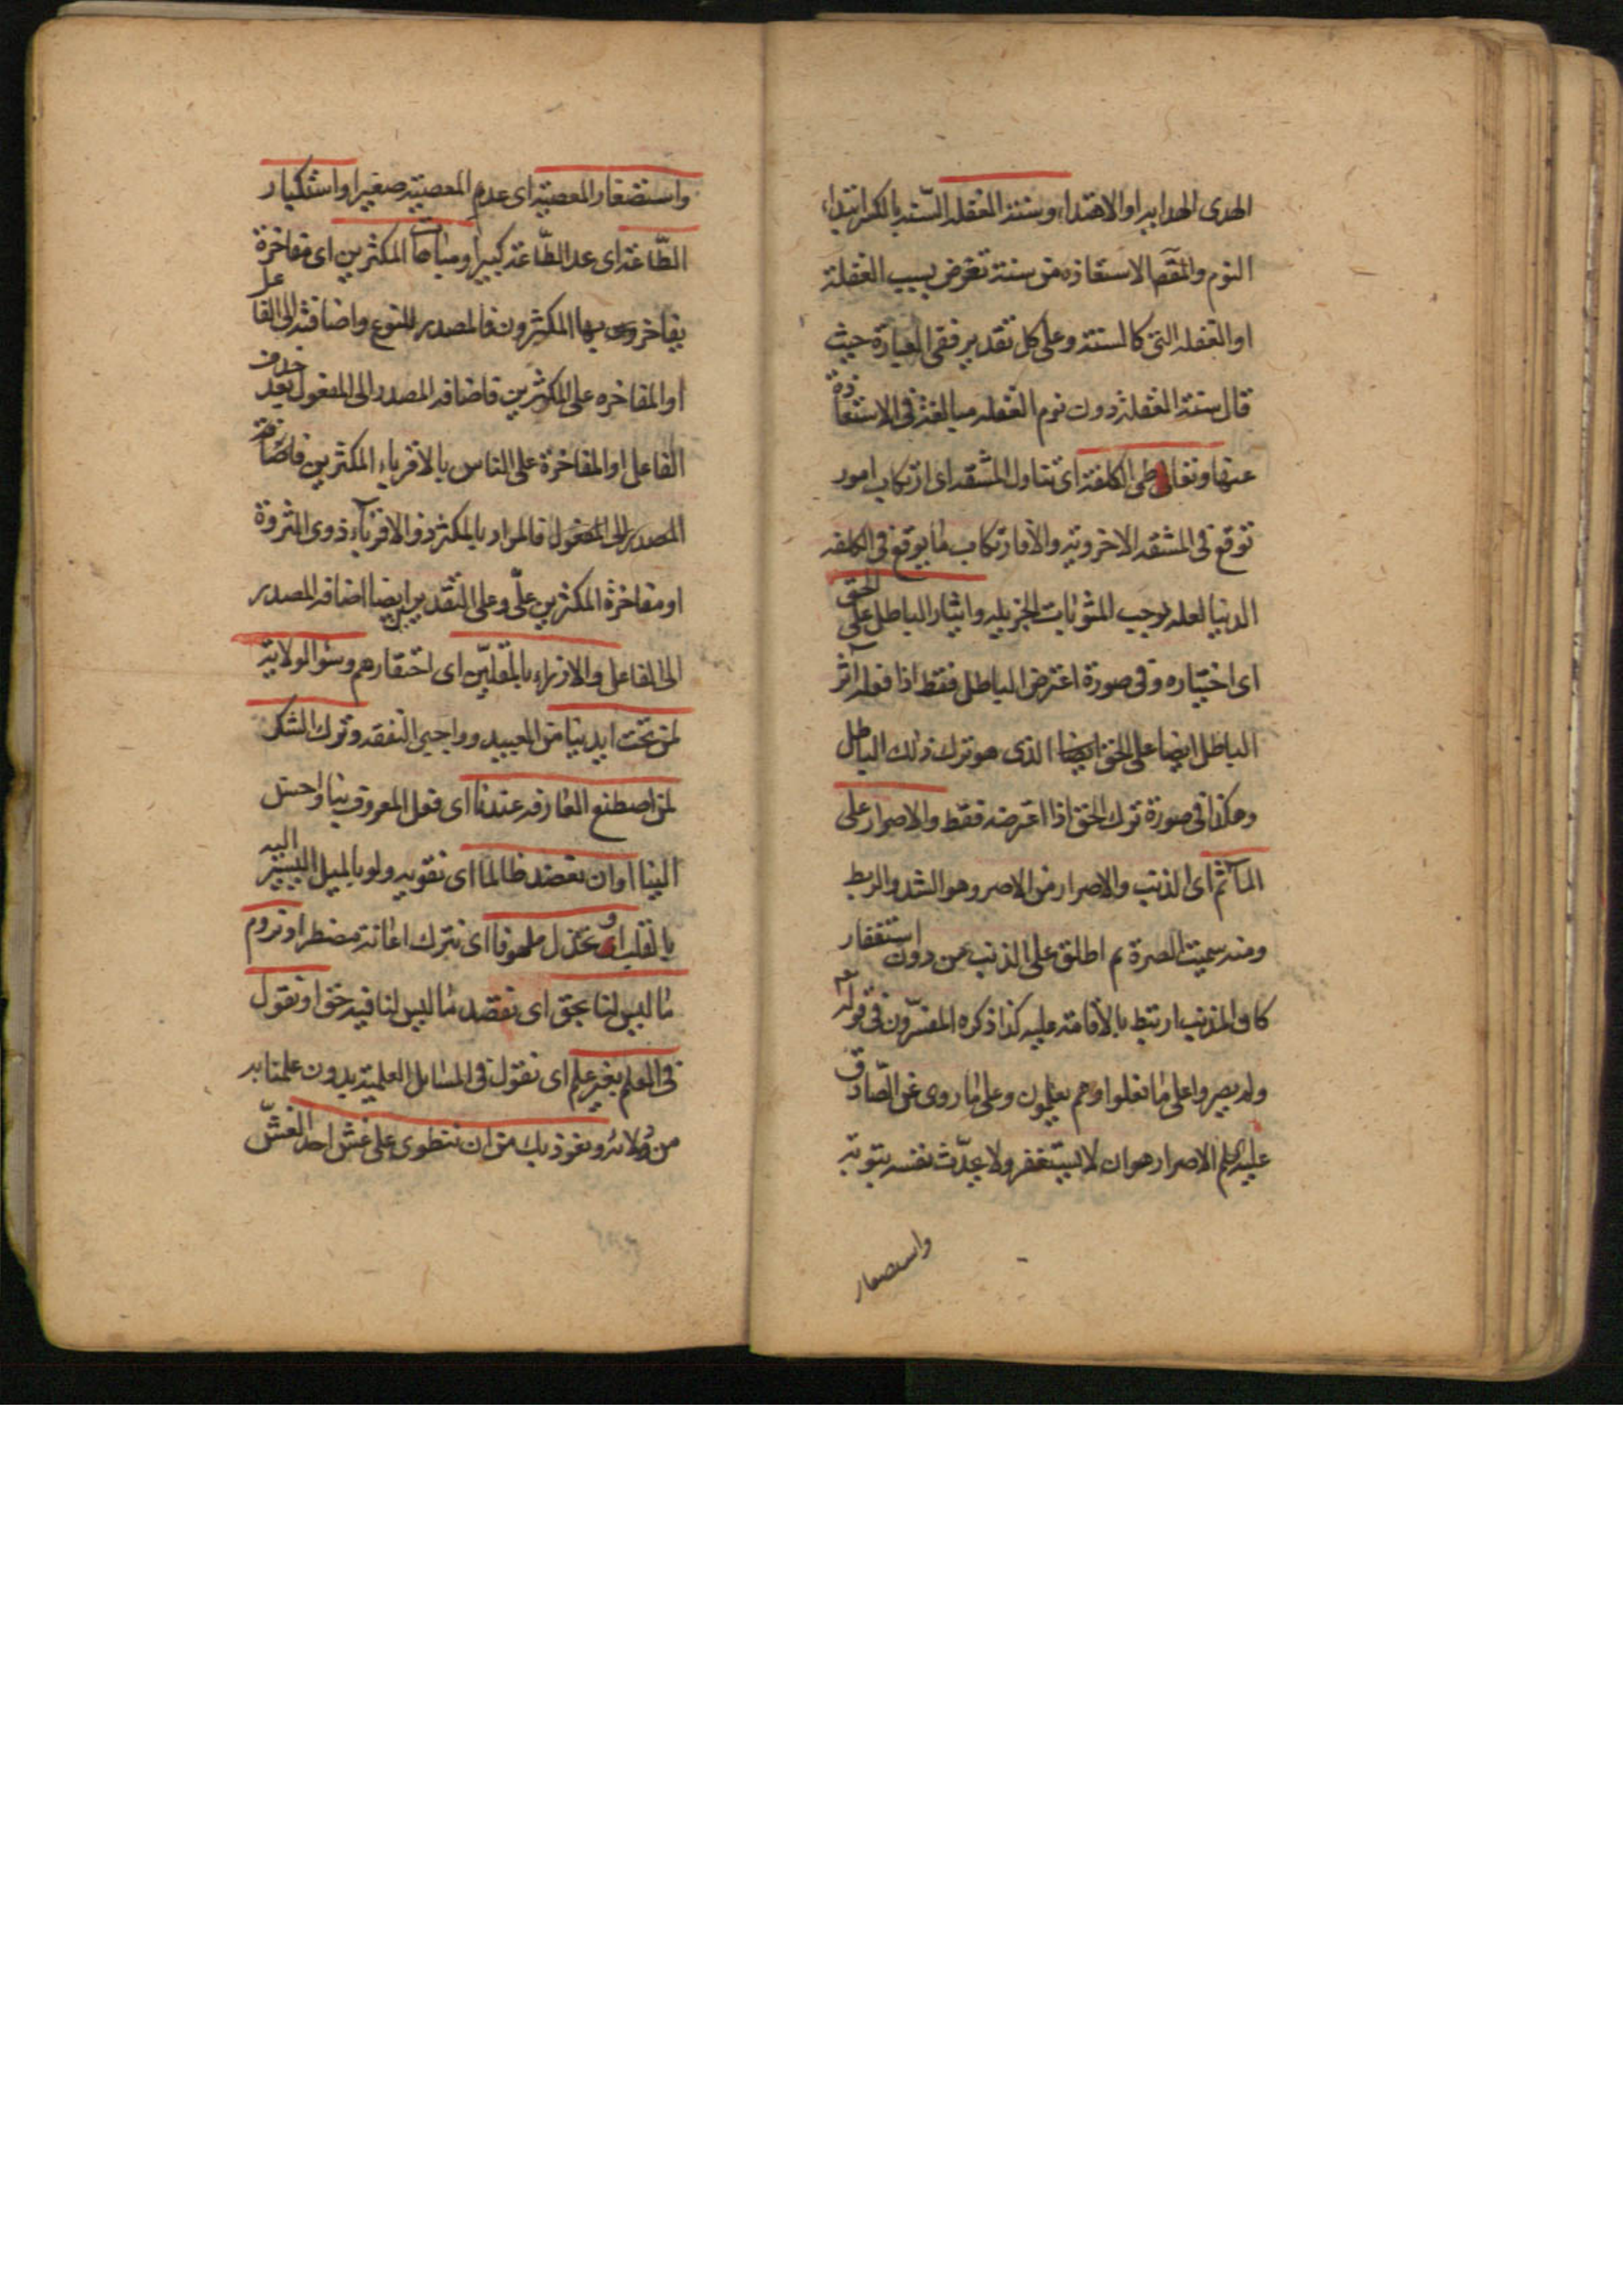 الهدى الهدايه او الاهتداء وسنة الغفلة السّنه بالكسر ابتداء
النوم والمقصالاستعاذه من سنة تعرض بسبب الغفلة
او الغفله التى كالسنة وعلى كل تقدير ففى العبارة حيث
قال سنة الغفلة دون نوم الغفله مبالغة فى الاستعاذة
عنها وتعاطى الكلفة اى تناول المشقه اى ارتكاب امور
توقع فى المشقه الاخروية والا فارتكاب ما يوقع فى الكلفه
الدنيا لعله يوجب المثوبات الجزيله وايثار الباطل على الحق
اى اختياره وفى صورة اعترض الباطل فقط اذا فعله آثر
الباطل ايضا على الحق ايضا الذى هو ترك ذلك الباطل
وهكذا فى صورة ترك الحق اذا اعترضه فقط والاصرار على
المآثم اى الذنب والاصرار من الاصر وهو الشد والربط
ومنه سميت الصرة ثم اطلق على الذنب من دون استغفار
كان المذنب ارتبط بالاقامة عليه كذا ذكره المفسّرون فى قوله تم
ولم يصروا على ما فعلوا وهم يعلمون وعلى ما روى عن الصّادق
عليه السلم الاصرار هو ان لا يستغفر ولا يحدّث نفسه بتوبة
واستصغار
واستصغار المعصية اى عدم المعصية صغيرا واستكبار
الطّاعة اى عد الطّاعة كبيرا ومباهات المكثرين اى مفاخرة
يفاخرون بها المكثرون فالمصدر للنوع واضافته الى الفاعل
او المفاخره على المكثرين فاضافه المصدر الى المفعول بعد حذف
الفاعل او المفاخرة على الناس بالاقرباء المكثرين فاضافة
المصدر الى المفعول فالمراد بالمكثر ذو الاقرباء ذوى الثروة
او مفاخرة المكثرين علّى وعلى التقديرين ايضا اضافه المصدر
الى الفاعل والازراء بالمقلّين اى احتقارهم وسوء الولاية
لمن تحت ايدينا من العبيد وواجبى النفقه وترك الشكر
لمن اصطنع العارفه عندنا اى فعل المعروف بنا واحسن
الينا او ان نعضد ظالما اى نقويه ولو بالميل اليسير اليه
بالقلب او نخذل ملهوفا اى نترك اعانة مضطر او نروم
ما ليس لنا بحق اى نقصد ما ليس لنا فيه حق او نقول
فى العلم بغير علم اى نقول فى المسايل العلمية بدون علمنا به
من ونعوذ بك من ان ننطوى على غش احد الغشّ